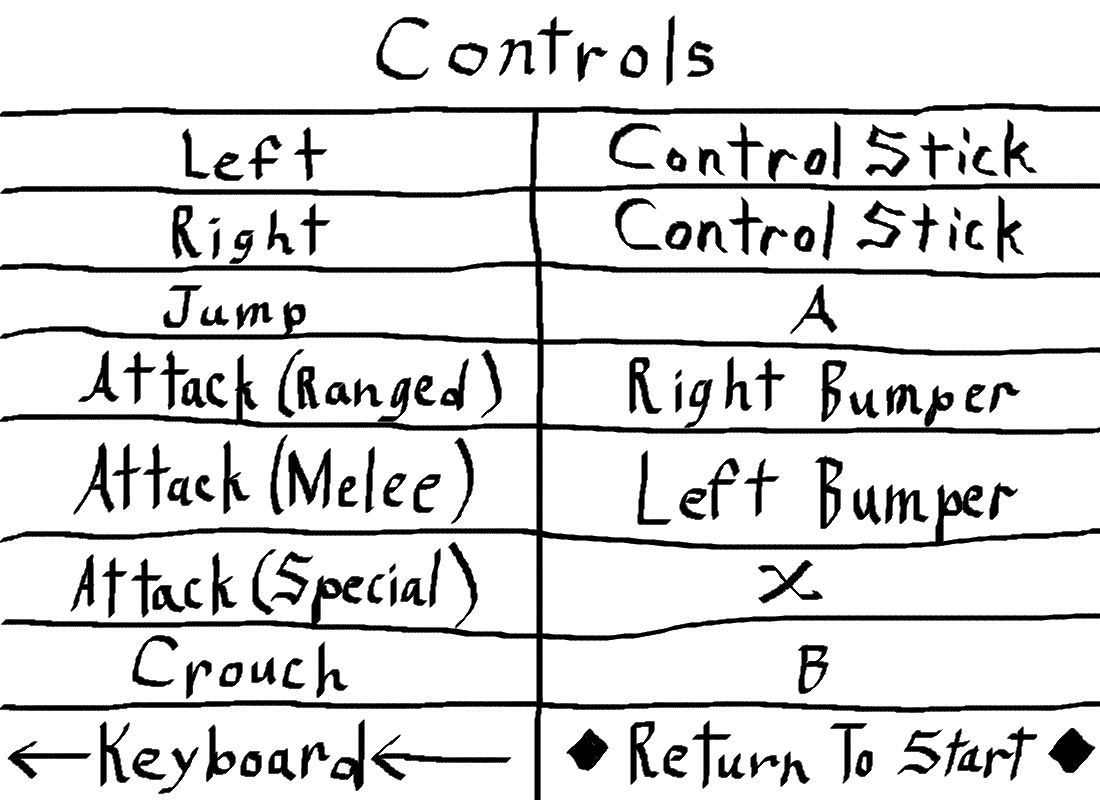 Controls
Left Control Stick
Right Control Stick
Jump A
Attack (Ranged) Right Bumper
Attack (Melee) Left Bumper
Attack (Special) X
Crouch B
←Keyboard← ◆ Return To Start ◆